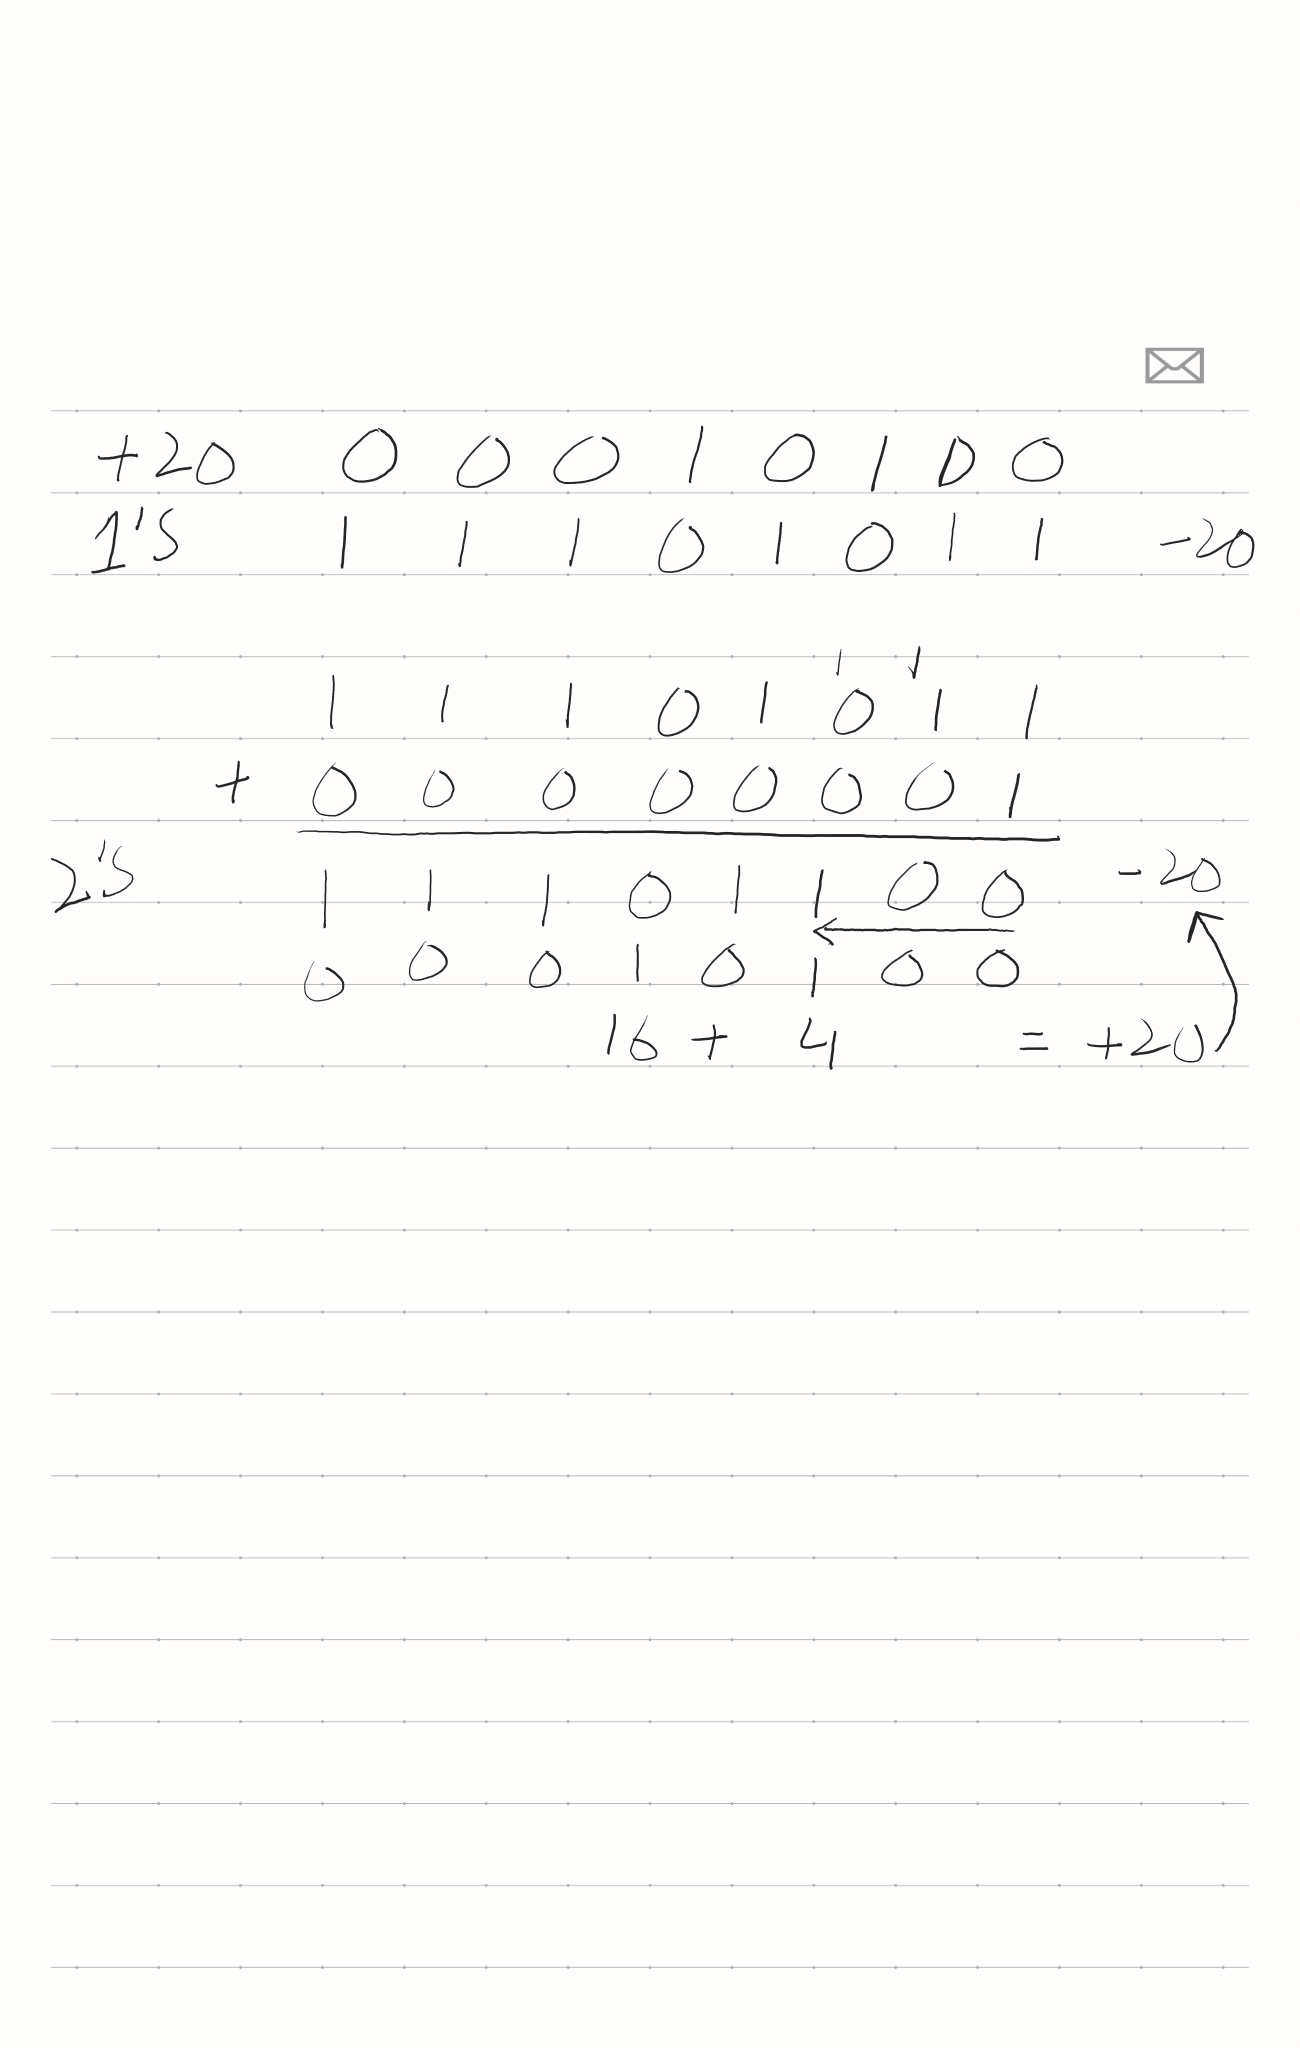 +20 0 0 0 1 0 1 0 0
1's 1 1 1 0 1 0 1 1 -20
1 1
1 1 1 0 1 0 1 1
+ 0 0 0 0 0 0 0 1
2's 1 1 1 0 1 1 0 0 -20
0 0 0 1 0 1 0 0
16 + 4 = +20